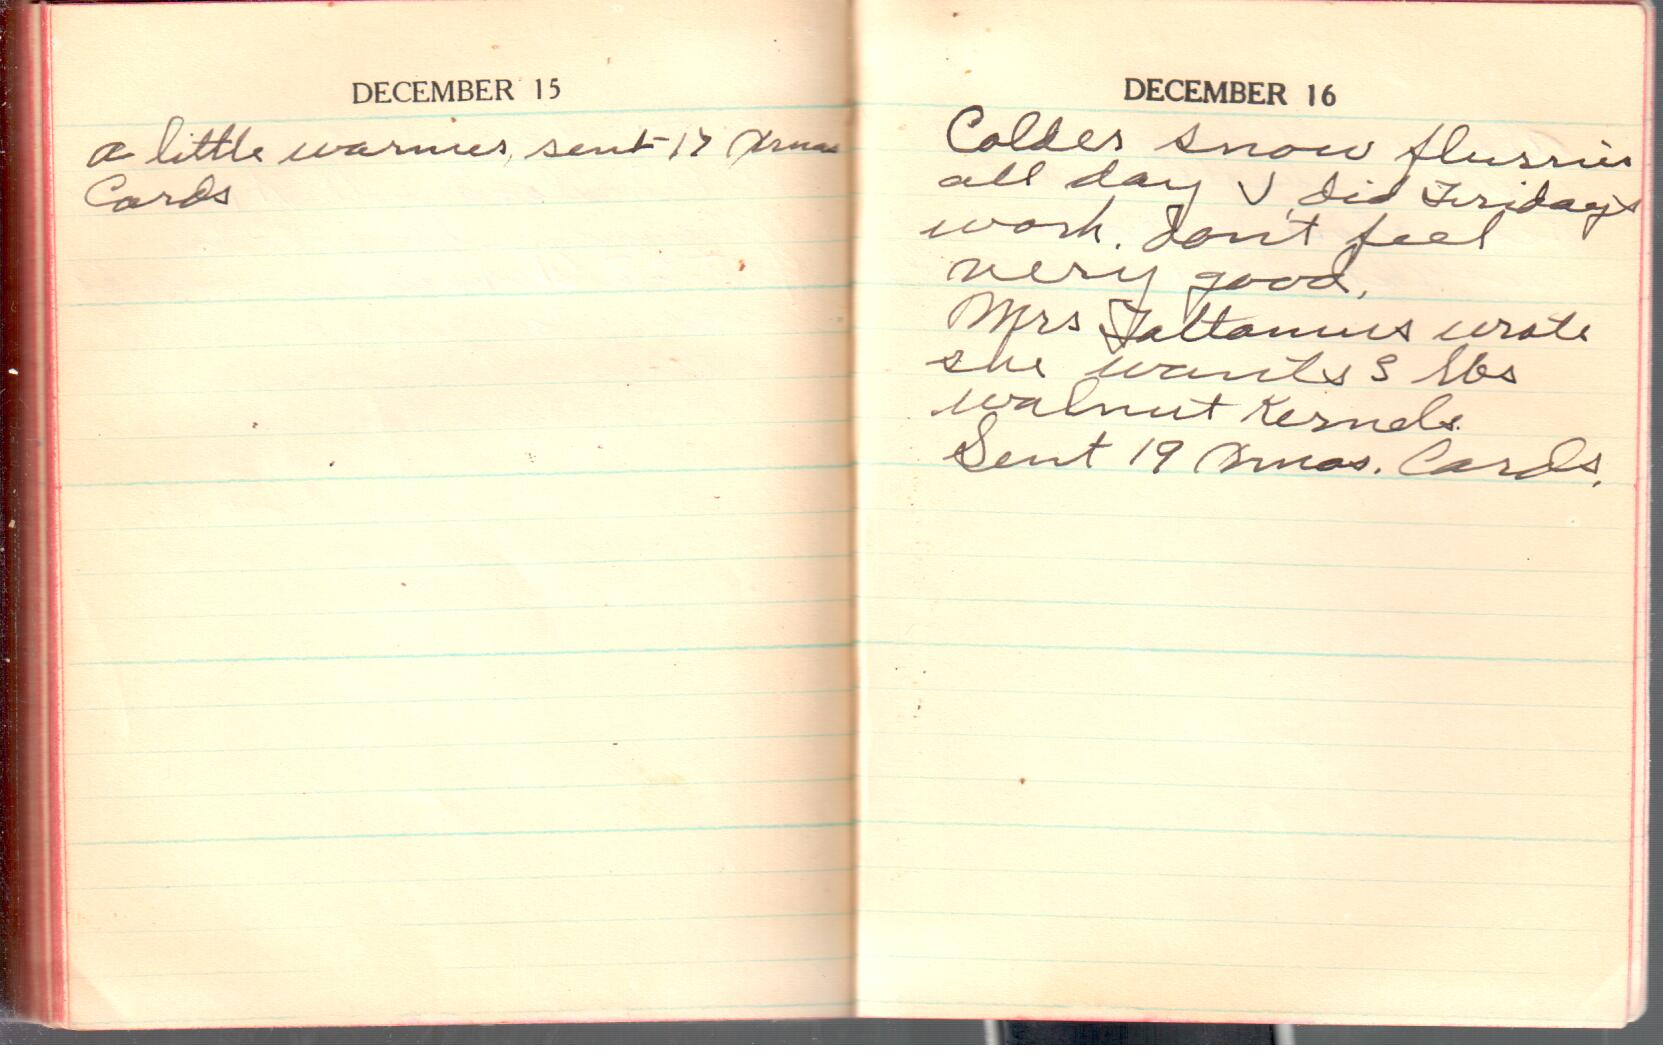 DECEMBER 15
a little warmer, sent 17 Xmas
Cards
DECEMBER 16
Colder snow flurries
all day I did Fridays
work. don't feel
very good.
Mrs wrote
she wants 3 lbs
walnut Kernels.
Sent 19 Xmas. Cards.